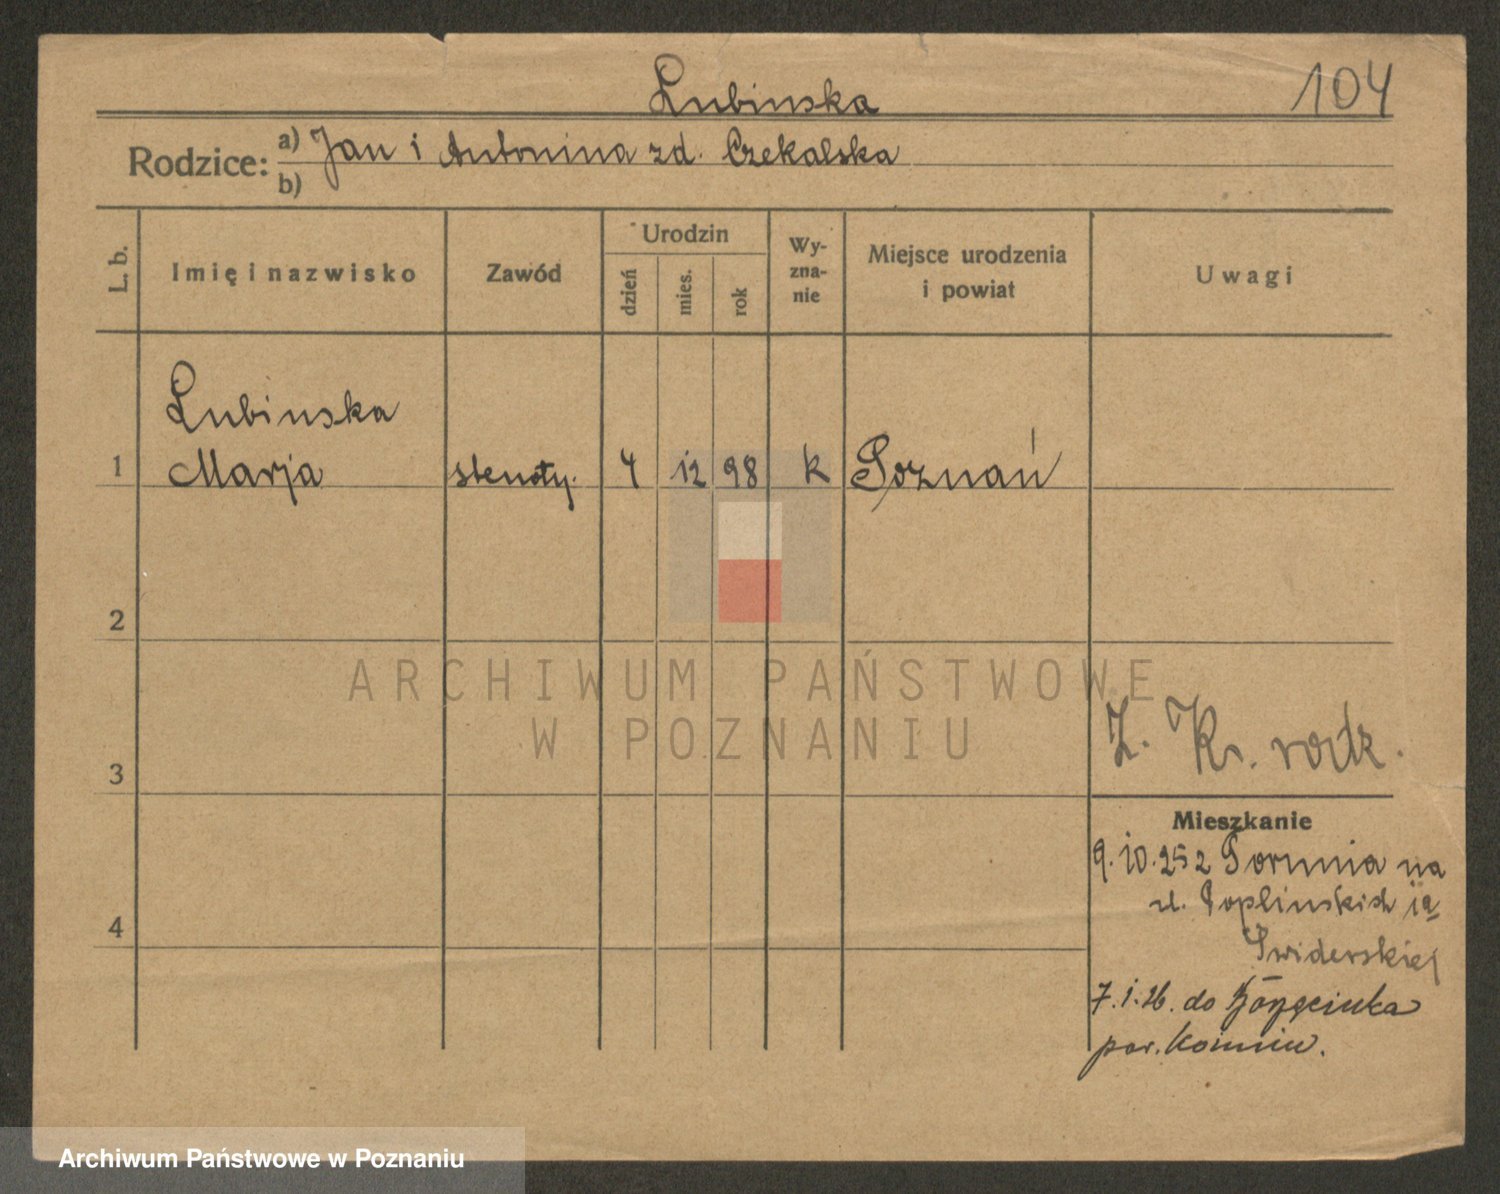 Łubinska
104
Rodzice: a) Jan i Antonina zd. Czekalska
b)
L. b.
Imię i nazwisko
Zawód
Urodzin
dzień
mies.
rok
Wy-
zna-
nie
Miejsce urodzenia
i powiat
Uwagi
Łubinska
1 Marja stenoty. 4 12 98 k Poznań
2
ARCHIWUM PAŃSTWOWE
W POZNANIU
Z. Kr. rodz.
3
Mieszkanie
9. 10. 25 z Torunia na
ul. Poplinskich
4
Swiderskiej
7. 1. 26. do
Archiwum Państwowe w Poznaniu